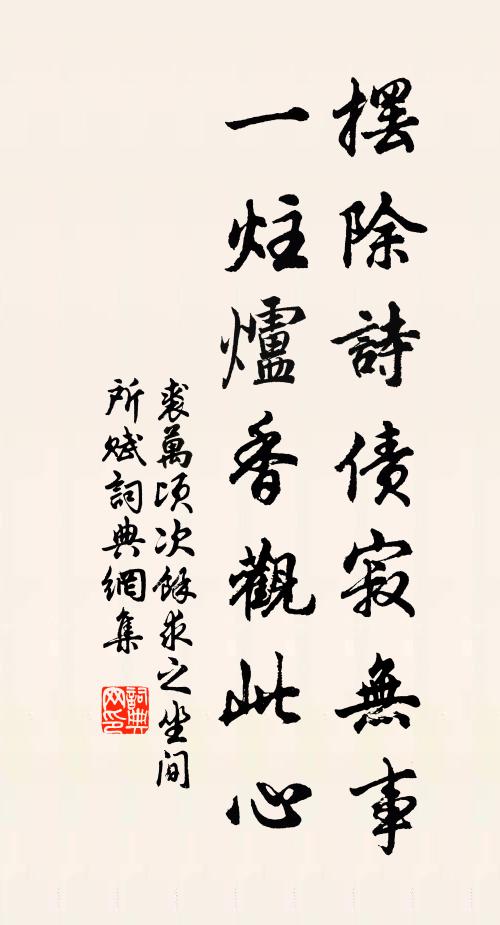 擺除詩債寂無事
一炷爐香觀此心
裘萬頃次餘求之坐间
所賦詞典網集
詞典网印